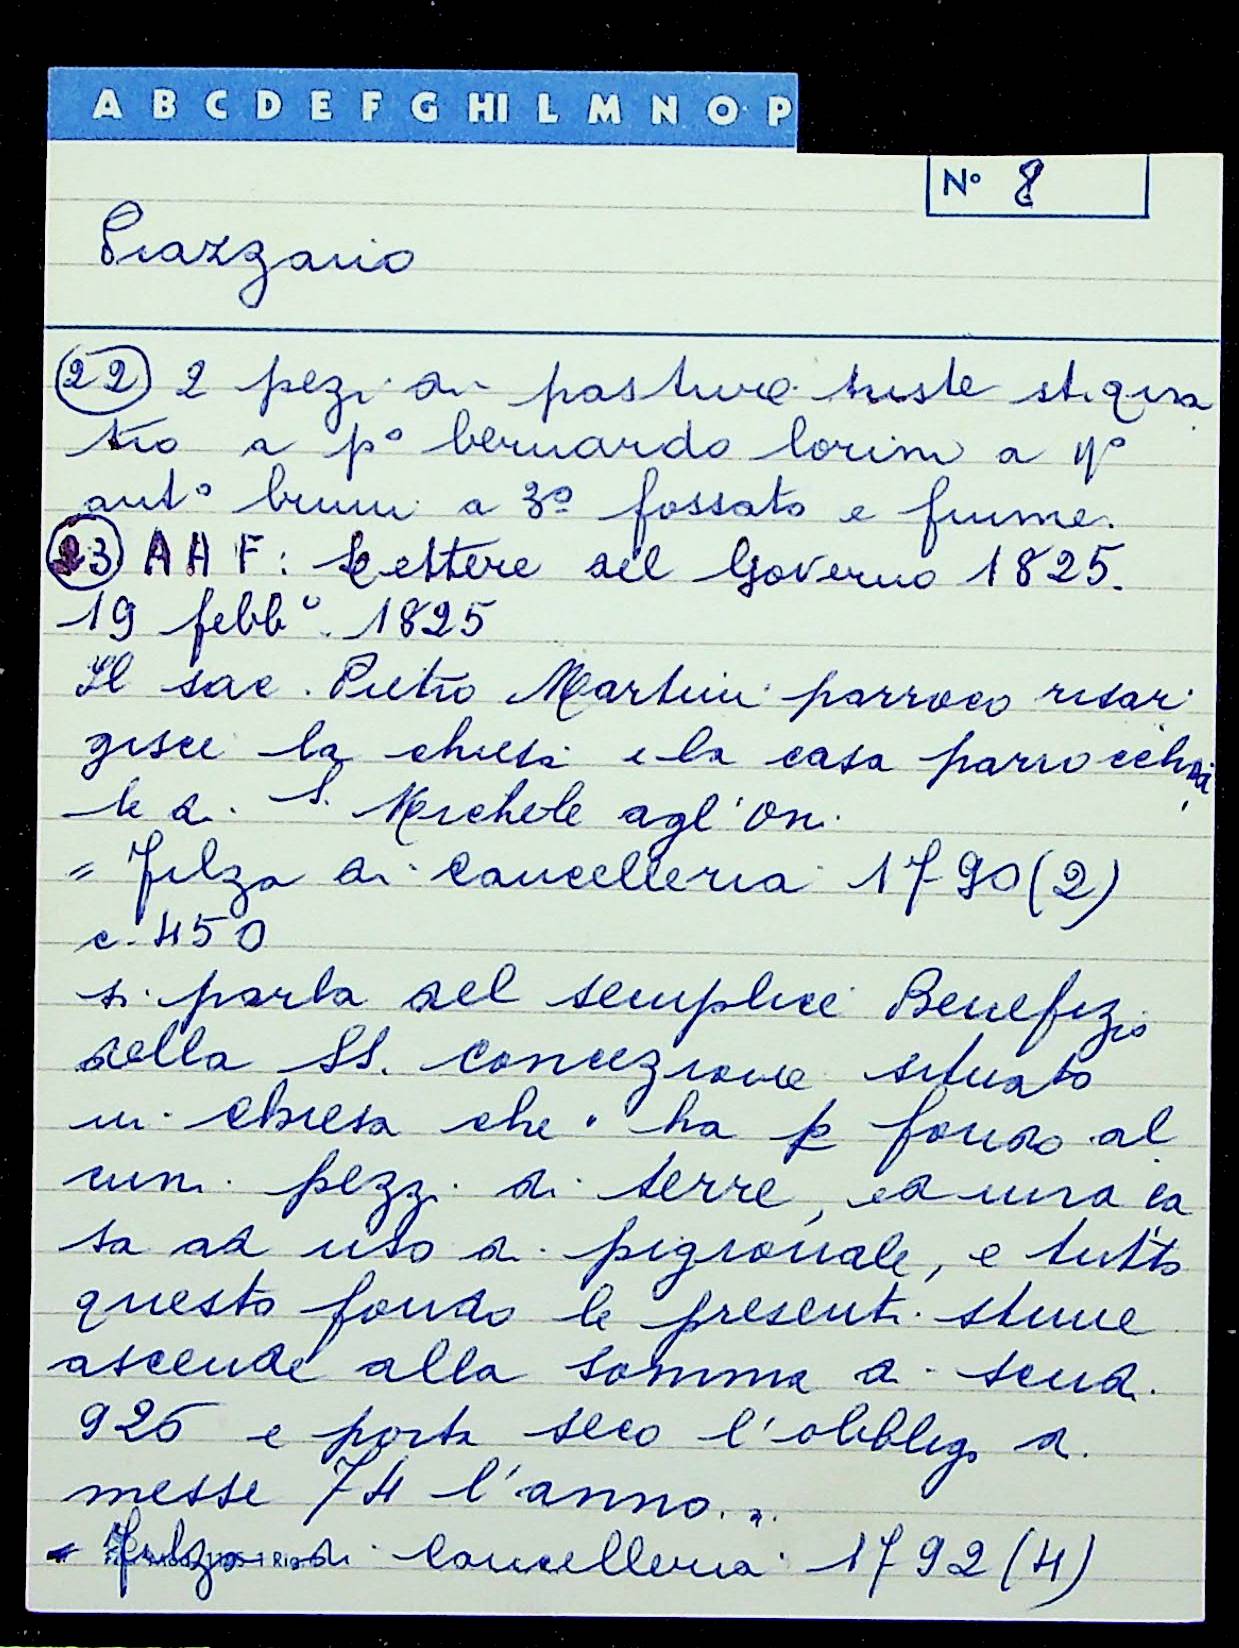 A B C D E F G HI L M N O P
N° 8
Piazzano
(22) 2 pezi di pasture triste stiqua
tro a p° bernardo lorini a 4°
ant° bruni a 3º fossato e fiume.
(23) A A F: Lettere del Governo 1825.
19 febb° 1825
Il sac. Pietro Martini parroco risar
gisce la chiesa e la casa parrocchia
le di S. Michele agl'Oni.
= Filza di cancelleria 1790(2)
c. 450
si parla del semplice Benefizio
della SS. concezione situato
in chiesa che ha p fondo al
cuni pezzi di terre, ed una ca
sa ad uso di pigionale, e tutto
questo fondo le presenti stime
ascende alla somma di scudi
925 e porta seco l'obbligo di
messe 74 l'anno.
= Filza di Cancelleria 1792(4)